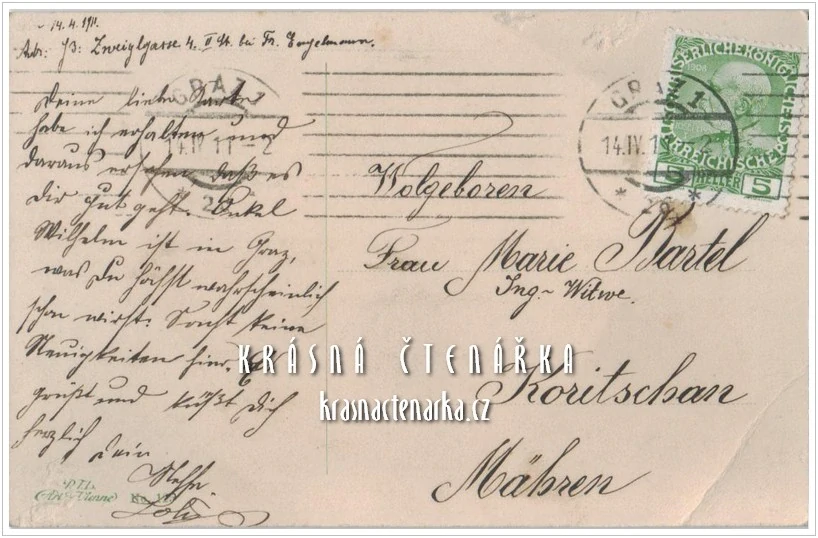 14.4.1911.
Adr: Zweiglgasse 4. II St. bei Fr. Engelmann.
GRAZ 1
14.IV.11-2
* 2a *
GRAZ 1
14.IV.1
* 2a *
KAISERLICHE KÖNIGLICHE ÖSTERREICHISCHE
1908
5 HELLER 5
Deine liebe Karte
habe ich erhalten und
daraus ersehen daß es
Dir gut geht. Onkel
Wilhelm ist in Graz,
was Du höchst wahrscheinlich
schon wirst. Sonst keine
Neuigkeiten hier. Es
grüßt und küßt Dich
herzlich Dein
Neffe
Wolgeboren
Frau Marie Bartel
Ing.- Witwe.
Koritschan
Mähren
KRÁSNÁ ČTENÁŘKA
krasnactenarka.cz